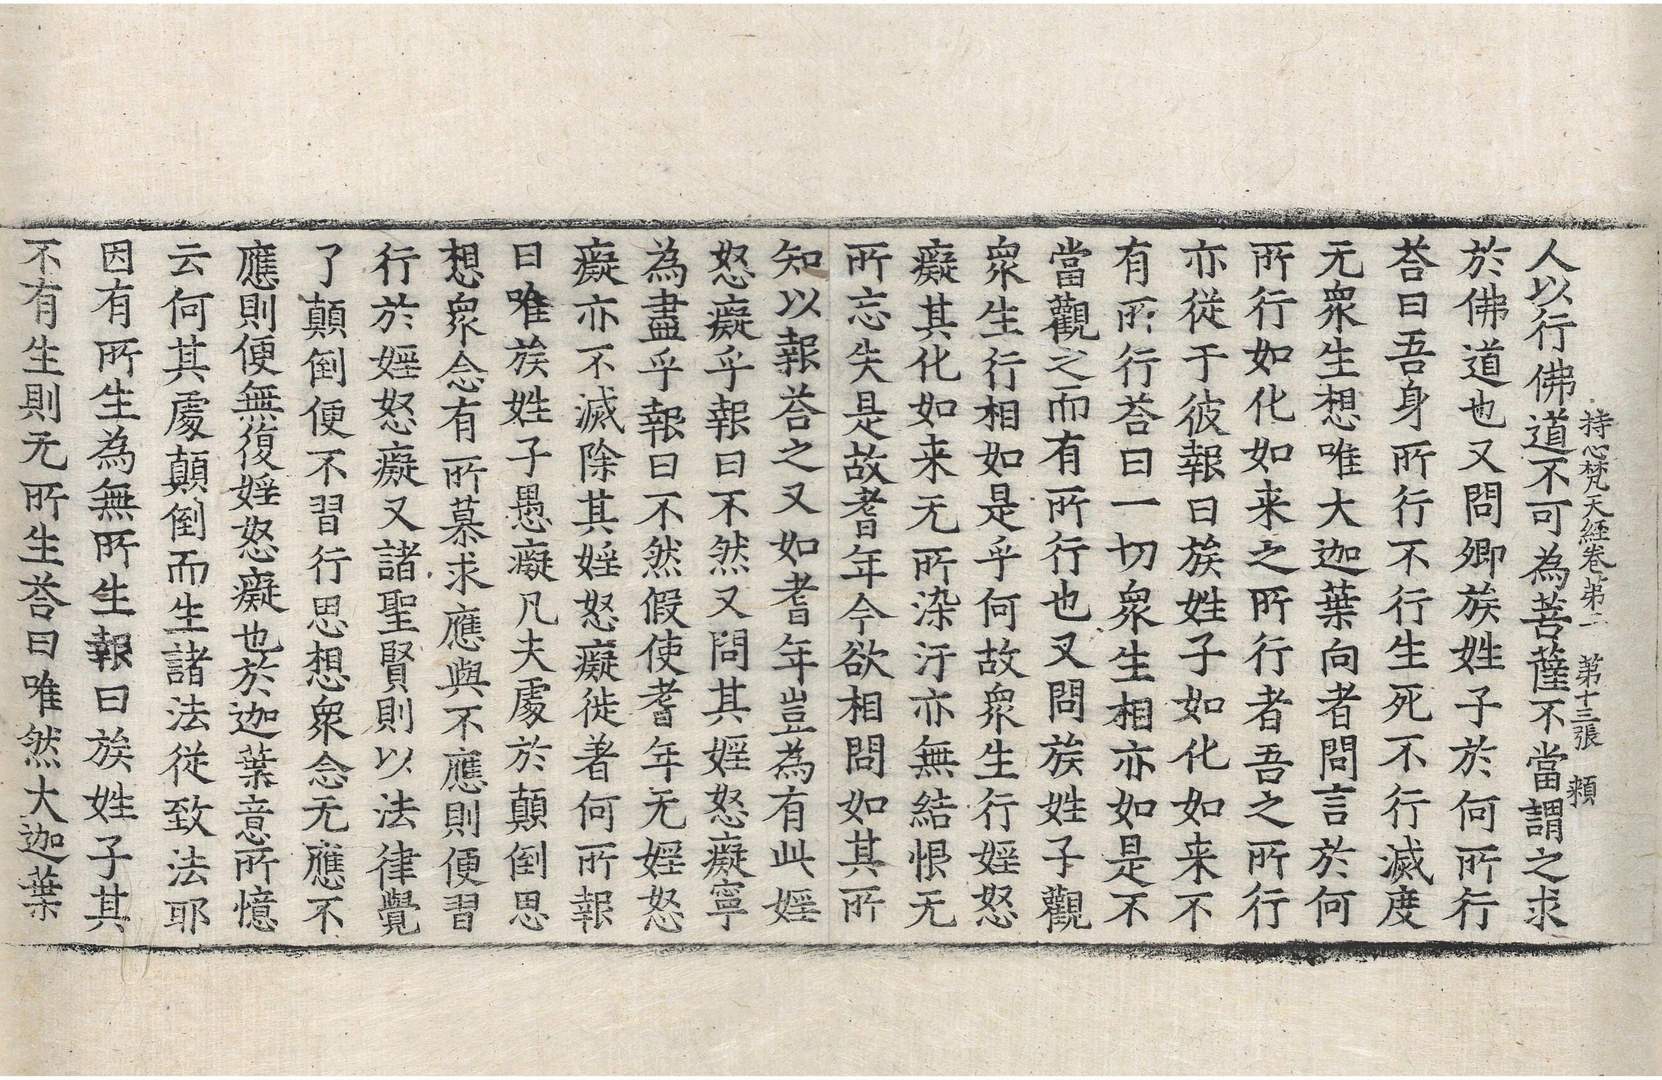 持心梵天經卷第二　第十三張　賴
人以行佛道不可為菩薩不當謂之求
於佛道也又問卿族姓子於何所行
荅曰吾身所行不行生死不行滅度
无衆生想唯大迦葉向者問言於何
所行如化如来之所行者吾之所行
亦從于彼報曰族姓子如化如来不
有所行荅曰一切衆生相亦如是不
當觀之而有所行也又問族姓子觀
衆生行相如是乎何故衆生行婬怒
癡其化如来无所染汙亦無結恨无
所忘失是故耆年今欲相問如其所
知以報荅之又如耆年豈為有此婬
怒癡乎報曰不然又問其婬怒癡寧
為盡乎報曰不然假使耆年无婬怒
癡亦不滅除其婬怒癡徙著何所報
曰唯族姓子愚癡凡夫處於顛倒思
想衆念有所慕求應與不應則便習
行於婬怒癡又諸聖賢則以法律覺
了顛倒便不習行思想衆念无應不
應則便無復婬怒癡也於迦葉意所憶
云何其處顛倒而生諸法從致法耶
因有所生為無所生報曰族姓子其
不有生則无所生荅曰唯然大迦葉